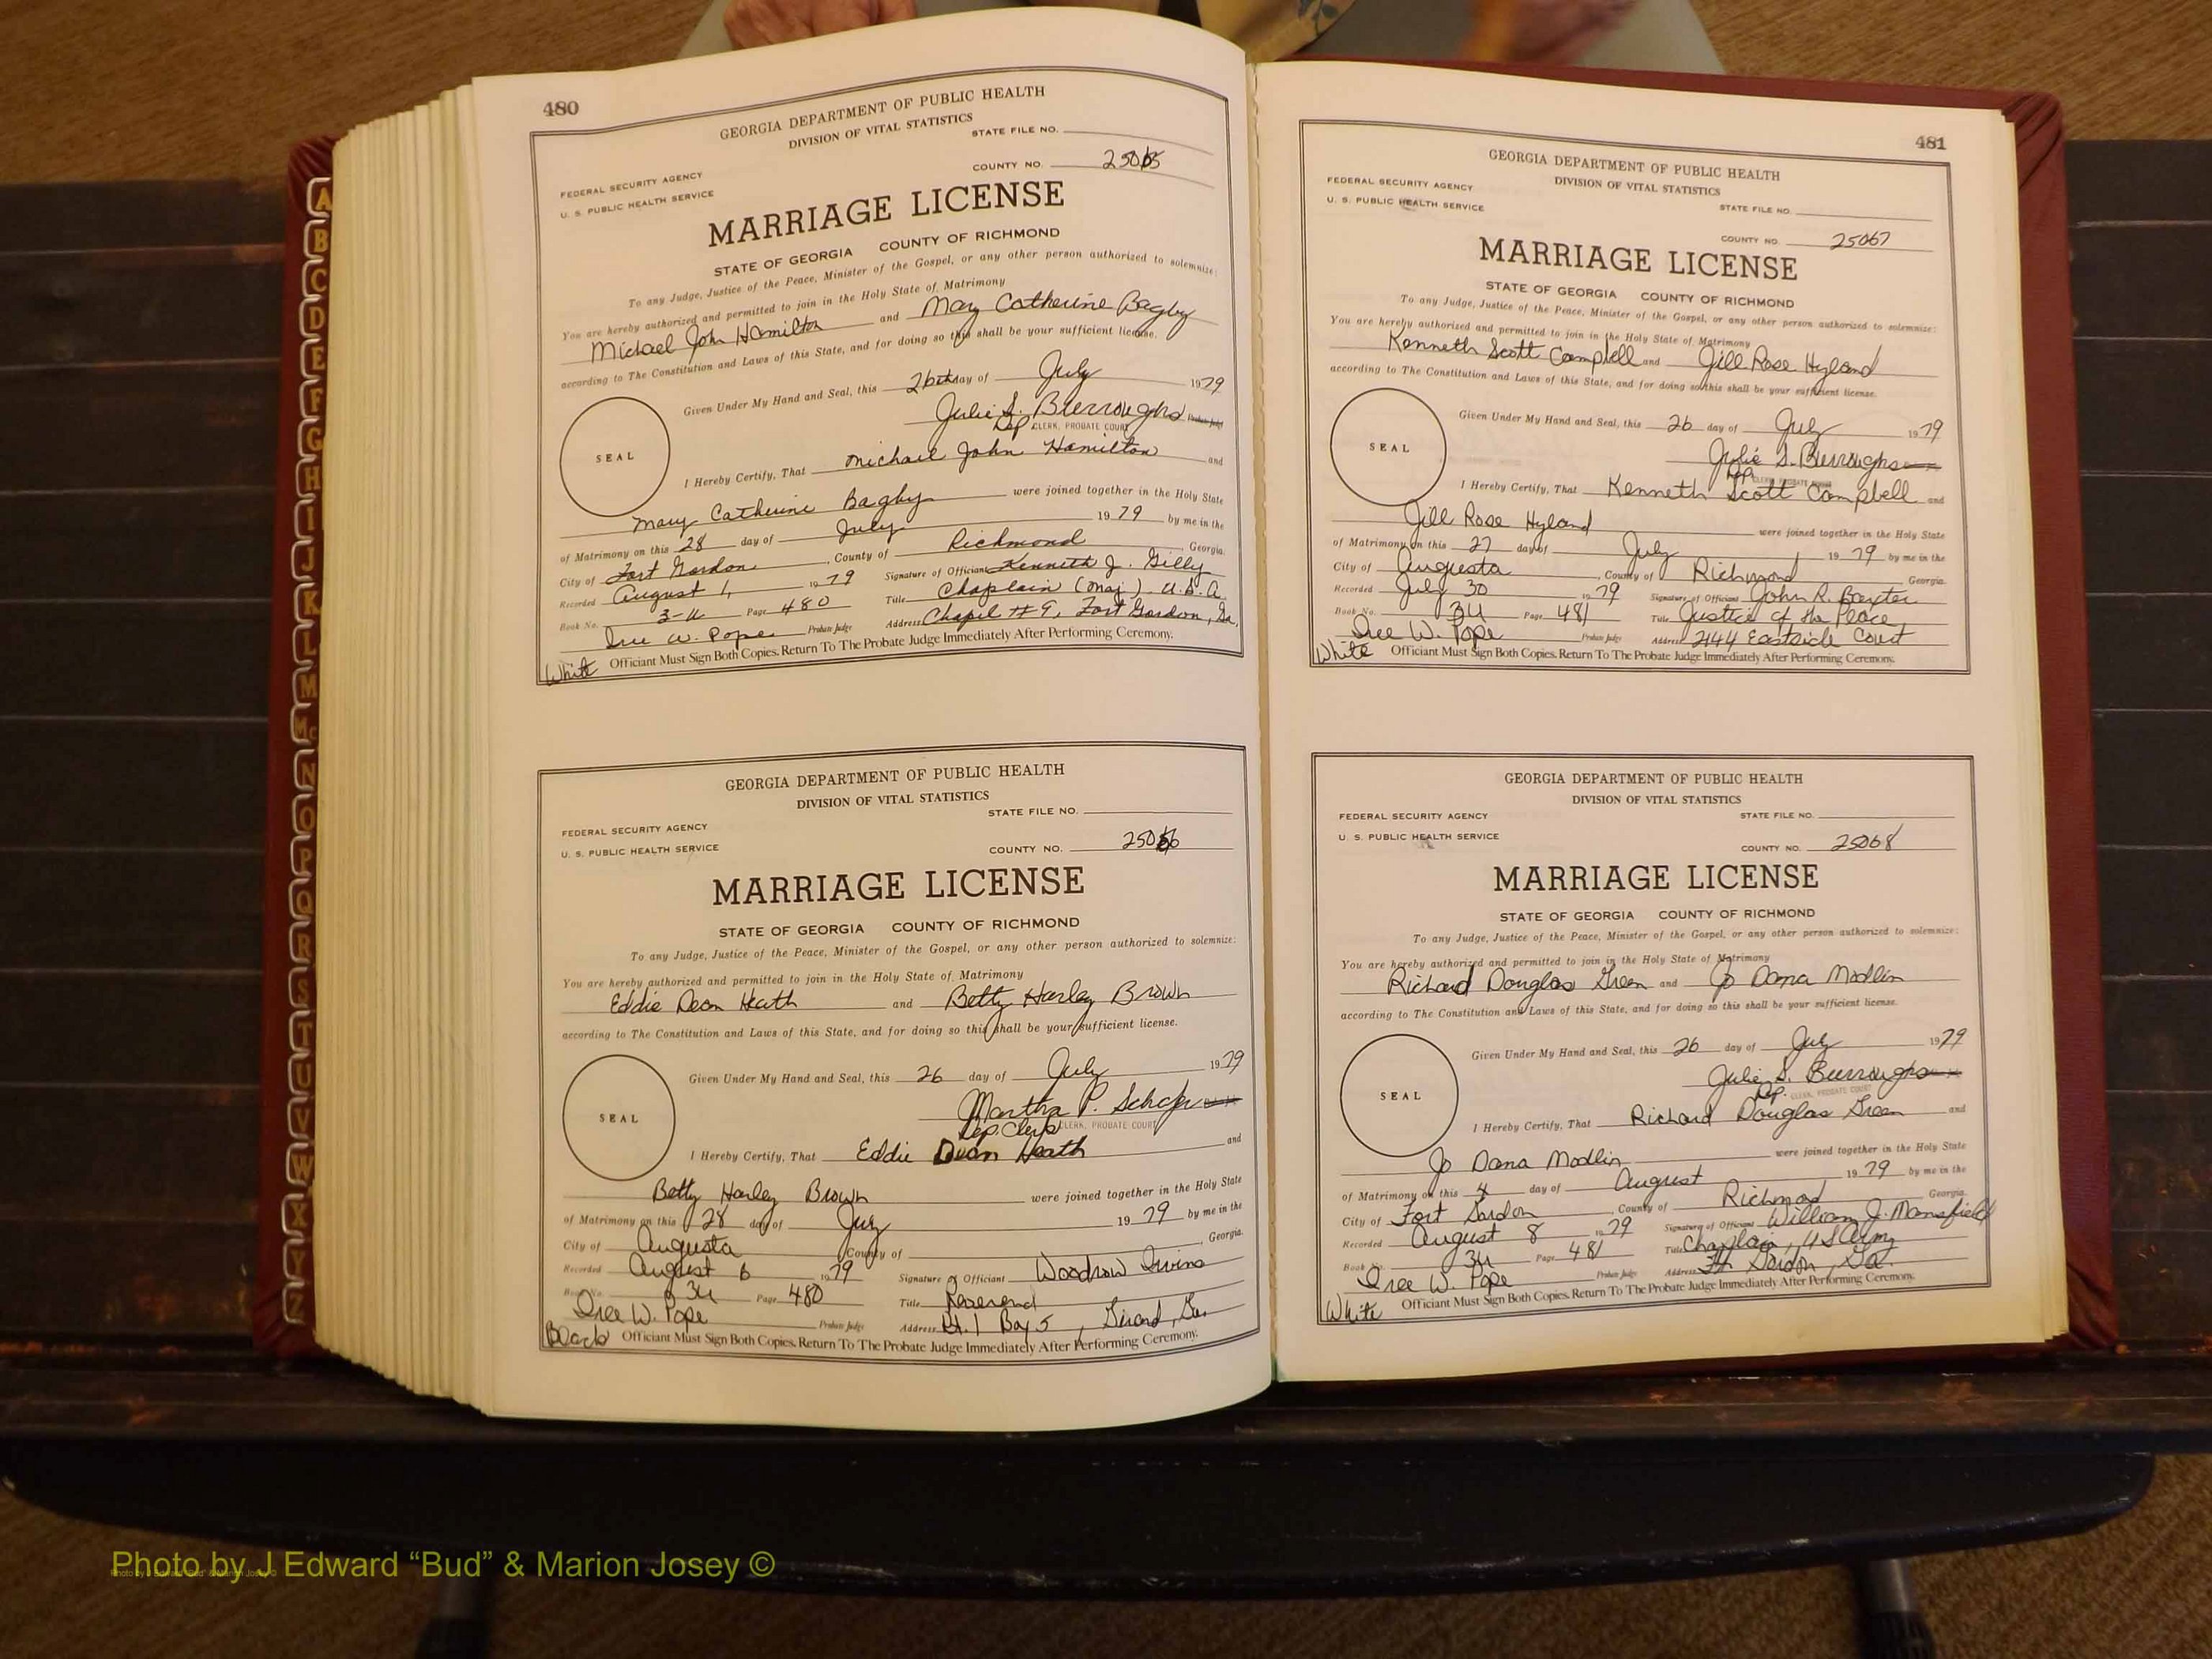 480
GEORGIA DEPARTMENT OF PUBLIC HEALTH
DIVISION OF VITAL STATISTICS
STATE FILE NO.
COUNTY NO. 25065
FEDERAL SECURITY AGENCY
U. S. PUBLIC HEALTH SERVICE
MARRIAGE LICENSE
STATE OF GEORGIA COUNTY OF RICHMOND
To any Judge, Justice of the Peace, Minister of the Gospel, or any other person authorized to solemnize:
You are hereby authorized and permitted to join in the Holy State of Matrimony
Michael John Hamilton and Mary Catherine Bagby
according to The Constitution and Laws of this State, and for doing so this shall be your sufficient license.
Given Under My Hand and Seal, this 26th day of July 1979
Julie S. Burroughs Probate Judge
Dep. CLERK, PROBATE COURT
SEAL
I Hereby Certify, That Michael John Hamilton and
Mary Catherine Bagby were joined together in the Holy State
of Matrimony on this 28 day of July 1979 by me in the
City of Fort Gordon, County of Richmond Georgia.
Recorded August 1, 1979 Signature of Officiant Kenneth J. Gilly
Book No. 3-U Page 480 Title Chaplain (Maj) U.S.A.
Iree W. Pope Probate Judge Address Chapel #9, Fort Gordon, Ga.
White Officiant Must Sign Both Copies. Return To The Probate Judge Immediately After Performing Ceremony.
GEORGIA DEPARTMENT OF PUBLIC HEALTH
DIVISION OF VITAL STATISTICS
STATE FILE NO.
FEDERAL SECURITY AGENCY
U. S. PUBLIC HEALTH SERVICE
COUNTY NO. 25066
MARRIAGE LICENSE
STATE OF GEORGIA COUNTY OF RICHMOND
To any Judge, Justice of the Peace, Minister of the Gospel, or any other person authorized to solemnize:
You are hereby authorized and permitted to join in the Holy State of Matrimony
Eddie Dean Heath and Betty Harley Brown
according to The Constitution and Laws of this State, and for doing so this shall be your sufficient license.
Given Under My Hand and Seal, this 26 day of July 1979
Martha P.
Dep. Clerk CLERK, PROBATE COURT
SEAL
I Hereby Certify, That Eddie Dean Heath and
Betty Harley Brown were joined together in the Holy State
of Matrimony on this 28 day of July 1979 by me in the
City of Augusta County of Georgia.
Recorded August 6 1979 Signature of Officiant Woodrow Ivins
Book No. 3U Page 480 Title Reverend
Iree W. Pope Probate Judge Address Rt. 1 Box 5, Girard, Ga.
Black Officiant Must Sign Both Copies. Return To The Probate Judge Immediately After Performing Ceremony.
481
GEORGIA DEPARTMENT OF PUBLIC HEALTH
DIVISION OF VITAL STATISTICS
FEDERAL SECURITY AGENCY
U. S. PUBLIC HEALTH SERVICE
STATE FILE NO.
COUNTY NO. 25067
MARRIAGE LICENSE
STATE OF GEORGIA COUNTY OF RICHMOND
To any Judge, Justice of the Peace, Minister of the Gospel, or any other person authorized to solemnize:
You are hereby authorized and permitted to join in the Holy State of Matrimony
Kenneth Scott Campbell and Jill Rose Hyland
according to The Constitution and Laws of this State, and for doing so this shall be your sufficient license.
Given Under My Hand and Seal, this 26 day of July 1979
Julie S. Burroughs
Dep. CLERK, PROBATE COURT
SEAL
I Hereby Certify, That Kenneth Scott Campbell and
Jill Rose Hyland were joined together in the Holy State
of Matrimony on this 27 day of July 1979 by me in the
City of Augusta, County of Richmond Georgia.
Recorded July 30 1979 Signature of Officiant John R. Baxter
Book No. 3U Page 481 Title Justice of the Peace
Iree W. Pope Probate Judge Address 2144 Eastside Court
White Officiant Must Sign Both Copies. Return To The Probate Judge Immediately After Performing Ceremony.
GEORGIA DEPARTMENT OF PUBLIC HEALTH
DIVISION OF VITAL STATISTICS
FEDERAL SECURITY AGENCY
STATE FILE NO.
U. S. PUBLIC HEALTH SERVICE
COUNTY NO. 25068
MARRIAGE LICENSE
STATE OF GEORGIA COUNTY OF RICHMOND
To any Judge, Justice of the Peace, Minister of the Gospel, or any other person authorized to solemnize:
You are hereby authorized and permitted to join in the Holy State of Matrimony
Richard Douglas Green and Jo Dana Modlin
according to The Constitution and Laws of this State, and for doing so this shall be your sufficient license.
Given Under My Hand and Seal, this 26 day of July 1979
Julie S. Burroughs
Dep. CLERK, PROBATE COURT
SEAL
I Hereby Certify, That Richard Douglas Green and
Jo Dana Modlin were joined together in the Holy State
of Matrimony on this 4 day of August 1979 by me in the
City of Fort Gordon, County of Richmond Georgia.
Recorded August 8 1979 Signature of Officiant William J. Mansfield
Book No. 3U Page 481 Title Chaplain, US Army
Iree W. Pope Probate Judge Address Ft. Gordon, Ga.
White Officiant Must Sign Both Copies. Return To The Probate Judge Immediately After Performing Ceremony.
A
B
C
D
E
F
G
H
I
J
K
L
M
Mc
N
O
P
Q
R
S
T
U
V
W
X
Y
Z
Photo by J Edward “Bud” & Marion Josey ©
Photo by J Edward "Bud" & Marion Josey ©